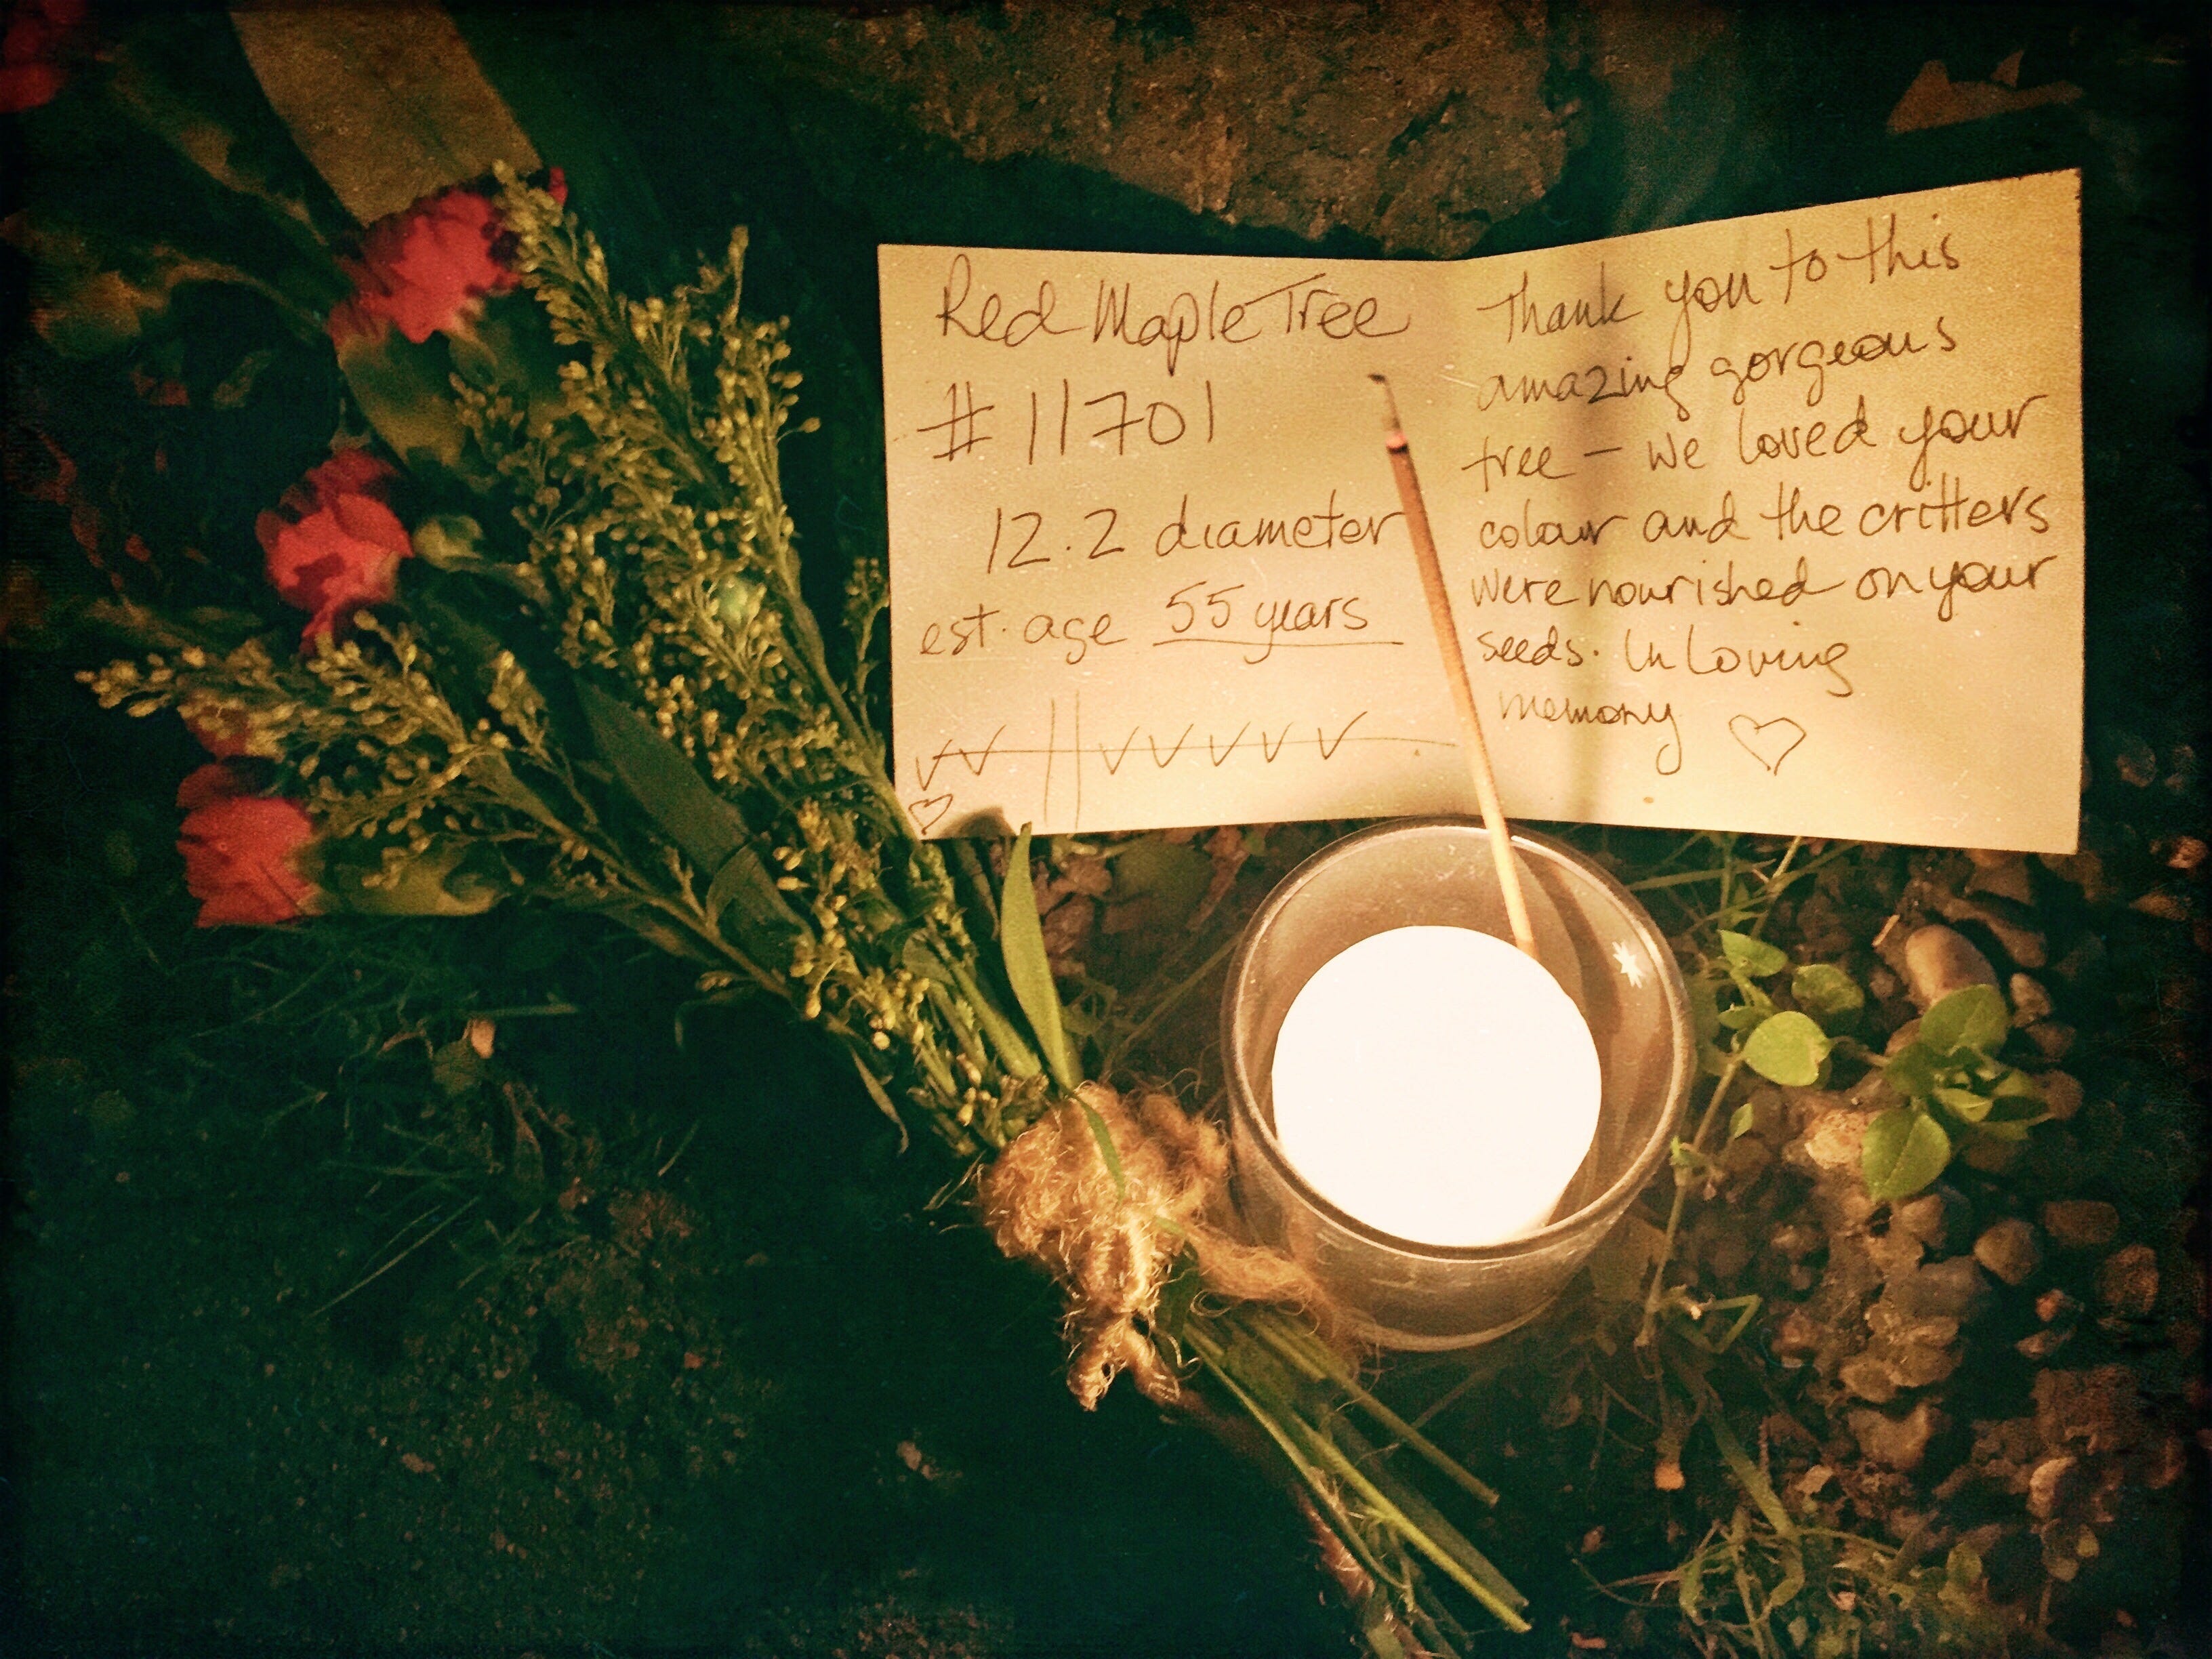 Red Maple Tree
#11701
12.2 diameter
est. age 55 years
Thank you to this
amazing gorgeous
tree - we loved your
colour and the critters
were nourished on your
seeds. In Loving
memory